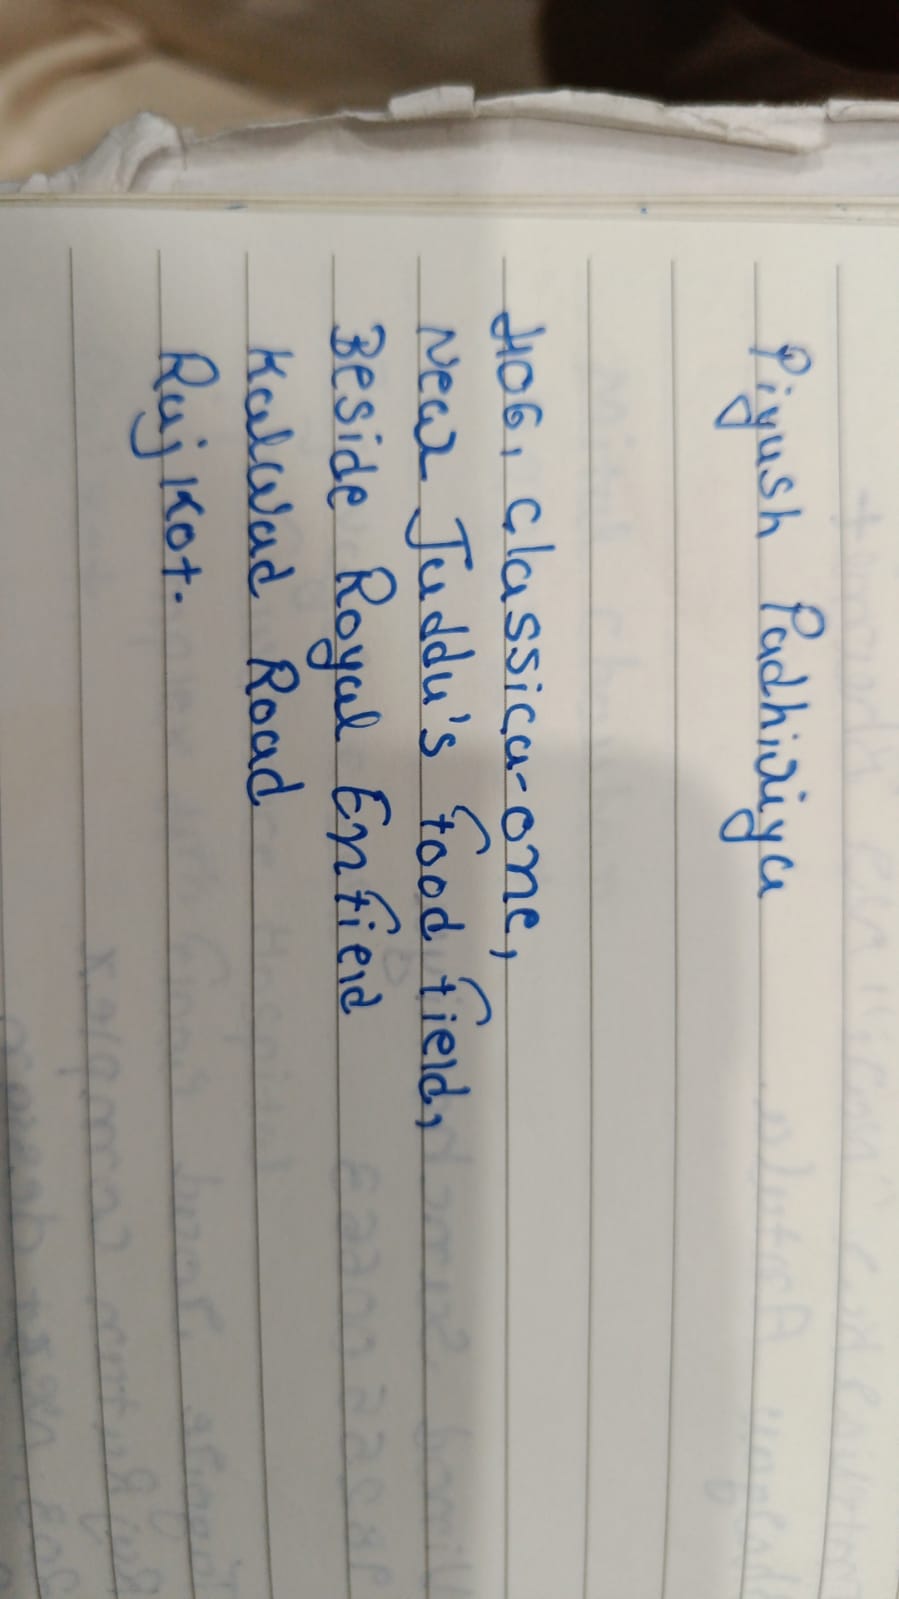 Piyush Padhiriya
406, classica-one,
Near Juddu's food field,
Beside Royal Enfield
Kalawad Road
Rajkot.